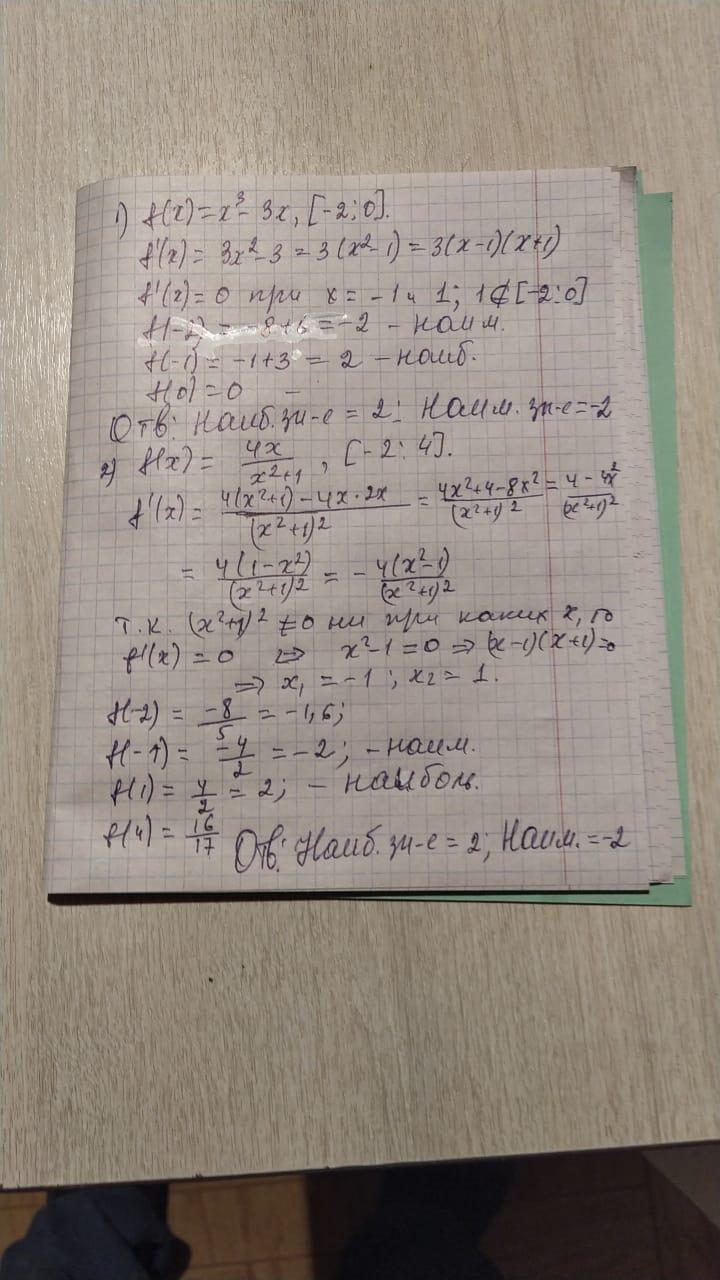 1) f(x) = x³ - 3x, [-2; 0].
f'(x) = 3x² - 3 = 3(x² - 1) = 3(x-1)(x+1)
f'(x) = 0 при x = -1 и 1; 1 ∉ [-2; 0]
f(-2) = -8 + 6 = -2 - наим.
f(-1) = -1 + 3 = 2 - наиб.
f(0) = 0 -
Отв: Наиб. зн-е = 2; Наим. зн-е = -2
2) f(x) = 4x/(x²+1), [-2; 4].
f'(x) = (4(x²+1) - 4x·2x)/(x²+1)² = (4x²+4-8x²)/(x²+1)² = (4-4x²)/(x²+1)²
= 4(1-x²)/(x²+1)² = -4(x²-1)/(x²+1)²
Т.к. (x²+1)² ≠ 0 ни при каких x, то
f'(x) = 0 ⇔ x²-1 = 0 ⇒ (x-1)(x+1) = 0
⇒ x₁ = -1; x₂ = 1.
f(-2) = -8/5 = -1,6;
f(-1) = -4/2 = -2; - наим.
f(1) = 4/2 = 2; - наиболь.
f(4) = 16/17 Отв: Наиб. зн-е = 2; Наим. = -2